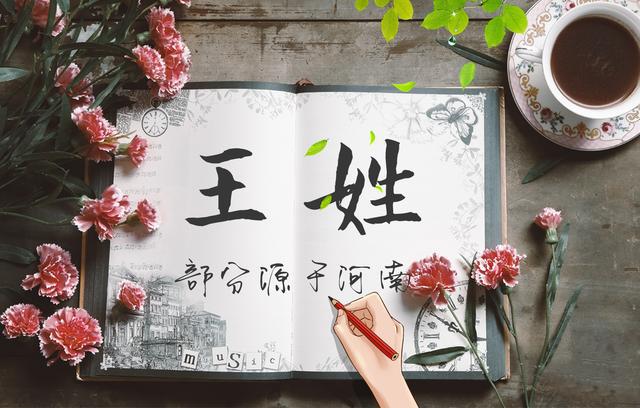 王姓
部分源于河南
music